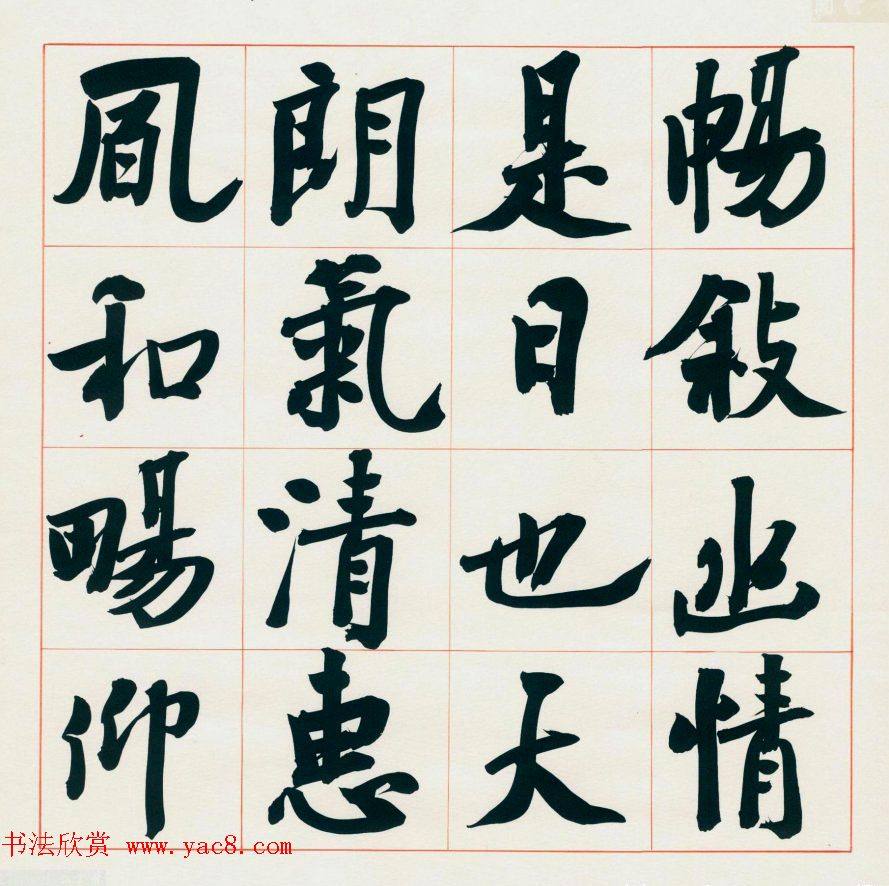 暢敘幽情
是日也天
朗氣清惠
風和暢仰
书法欣赏 www.yac8.com